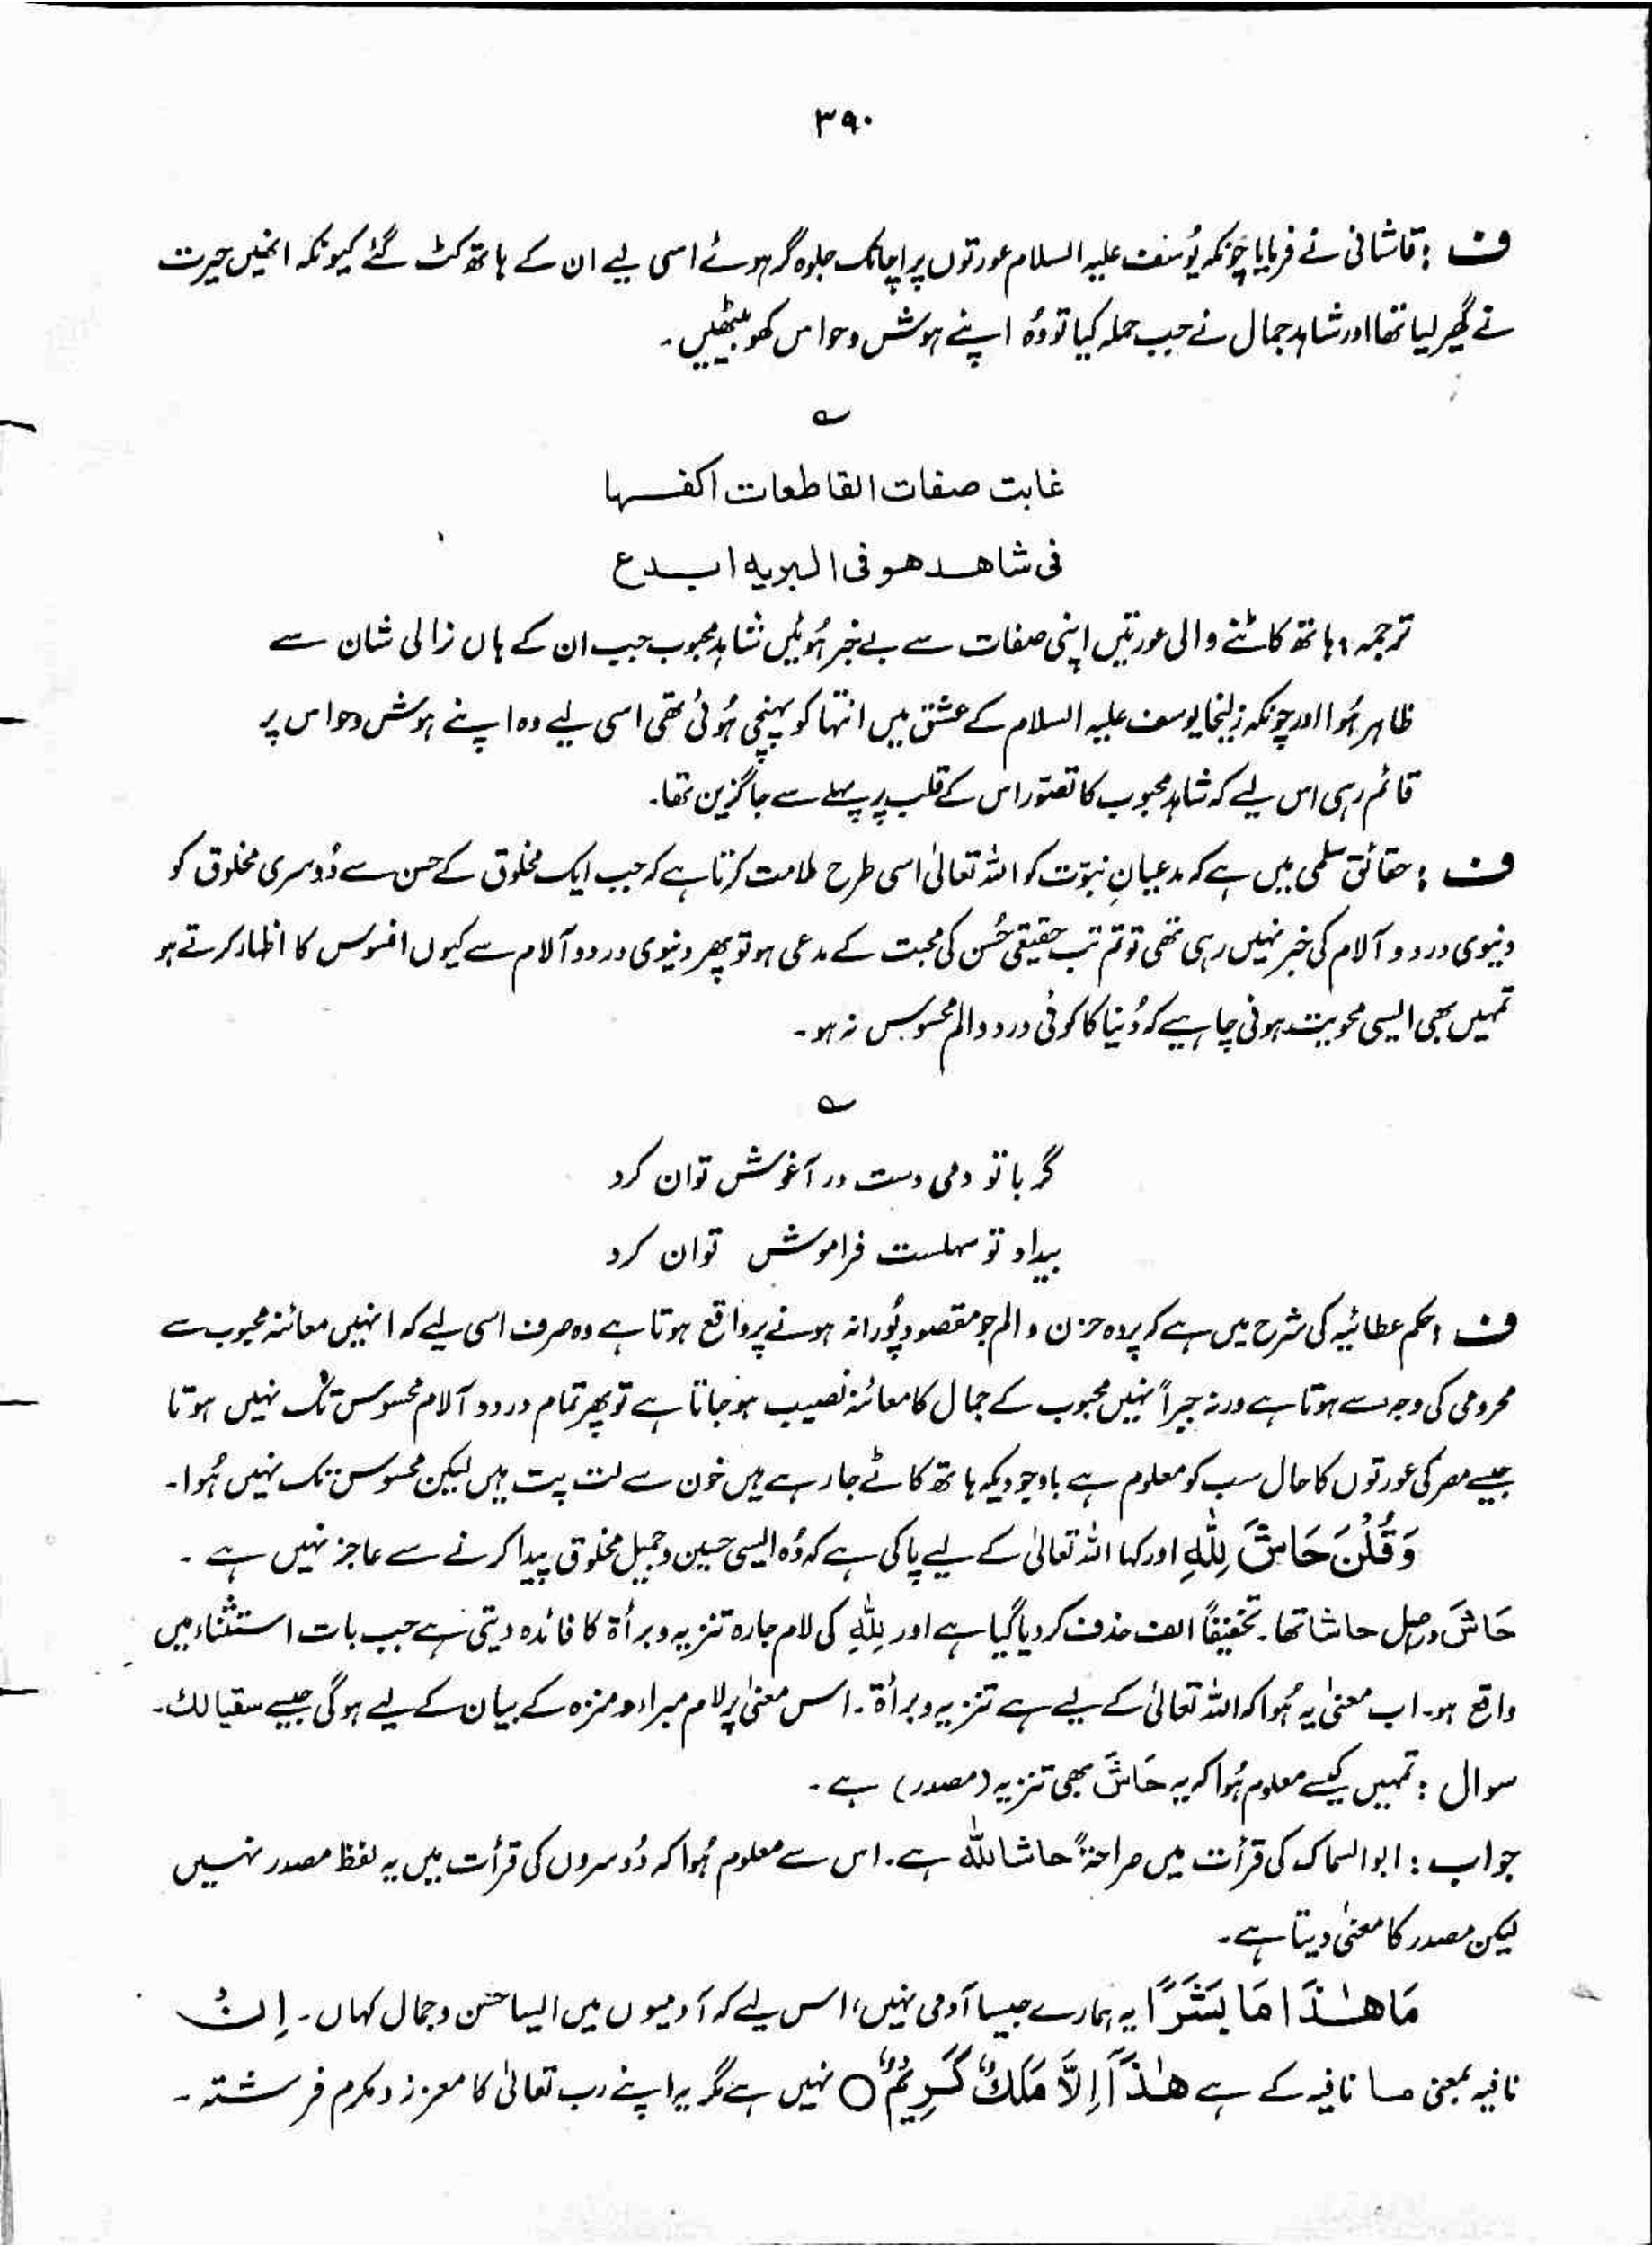 ۳۹۰
ف : قاشانی نے فرمایا چونکہ یُوسف علیہ السلام عورتوں پر اچانک جلوہ گر ہوئے اسی لیے ان کے ہاتھ کٹ گئے کیونکہ انہیں حیرت
نے گھیر لیا تھا اور شاہد جمال نے جب حملہ کیا تو وُہ اپنے ہوش و حواس کھو بیٹھیں۔
؎
غابت صفات القاطعات اکفها
فی شاهد هو فی البریه ابدع
ترجمہ : ہاتھ کاٹنے والی عورتیں اپنی صفات سے بے خبر ہُوئیں شاہد محبوب جب ان کے ہاں نرالی شان سے
ظاہر ہُوا اور چونکہ زلیخا یوسف علیہ السلام کے عشق میں انتہا کو پہنچی ہُوئی تھی اسی لیے وہ اپنے ہوش و حواس پر
قائم رہی اس لیے کہ شاہد محبوب کا تصوّر اس کے قلب پر پہلے سے جاگزین تھا۔
ف : حقائق سلمی میں ہے کہ مدعیانِ نبوّت کو اللہ تعالیٰ اسی طرح ملامت کرتا ہے کہ جب ایک مخلوق کے حسن سے دُوسری مخلوق کو
دنیوی درد و آلام کی خبر نہیں رہی تھی تو تم تب حقیقی حُسن کی محبت کے مدعی ہو تو پھر دنیوی درد و آلام سے کیوں افسوس کا اظہار کرتے ہو
تمہیں بھی ایسی محویت ہونی چاہیے کہ دُنیا کا کوئی درد و الم محسوس نہ ہو۔
؎
گر با تو دمی دست در آغوش توان کرد
بیداد تو سہلست فراموش توان کرد
ف : حکم عطائیہ کی شرح میں ہے کہ پردہ حزن و الم جو مقصود پُورا نہ ہونے پر واقع ہوتا ہے وہ صرف اسی لیے کہ انہیں معائنہ محبوب سے
محرومی کی وجہ سے ہوتا ہے ورنہ جبراً نہیں محبوب کے جمال کا معائنہ نصیب ہو جاتا ہے تو پھر تمام درد و آلام محسوس تک نہیں ہوتا
جیسے مصر کی عورتوں کا حال سب کو معلوم ہے باوجودیکہ ہاتھ کاٹے جا رہے ہیں خون سے لت پت ہیں لیکن محسوس تک نہیں ہُوا۔
وَقُلْنَ حَاشَ لِلّٰهِ اور کہا اللہ تعالیٰ کے لیے پاکی ہے کہ وُہ ایسی حسین و جمیل مخلوق پیدا کرنے سے عاجز نہیں ہے ۔
حَاشَ دراصل حاشا تھا۔ تخفیفاً الف حذف کر دیا گیا ہے اور لِلّٰهِ کی لام جارہ تنزیہ و برأۃ کا فائدہ دیتی ہے جب بات استثناء میں
واقع ہو۔ اب معنیٰ یہ ہُوا کہ اللہ تعالیٰ کے لیے ہے تنزیہ و برأۃ ۔ اس معنیٰ پر لام مبراء و منزہ کے بیان کے لیے ہو گی جیسے سقیا لك۔
سوال : تمہیں کیسے معلوم ہُوا کہ یہ حَاشَ بھی تنزیہ (مصدر) ہے ۔
جواب : ابو السماک کی قرأت میں صراحۃً حاشا للّٰہ ہے۔ اس سے معلوم ہُوا کہ دُوسروں کی قرأت میں یہ لفظ مصدر نہیں
لیکن مصدر کا معنیٰ دیتا ہے۔
مَاهٰذَا مَا بَشَرًا یہ ہمارے جیسا آدمی نہیں، اس لیے کہ آدمیوں میں ایسا حسن و جمال کہاں۔ اِنْ
نافیہ بمعنی ما نافیہ کے ہے هٰذَآ اِلَّا مَلَكٌ كَرِيْمٌ ○ نہیں ہے مگر یہ اپنے رب تعالیٰ کا معزز و مکرم فرشتہ ۔